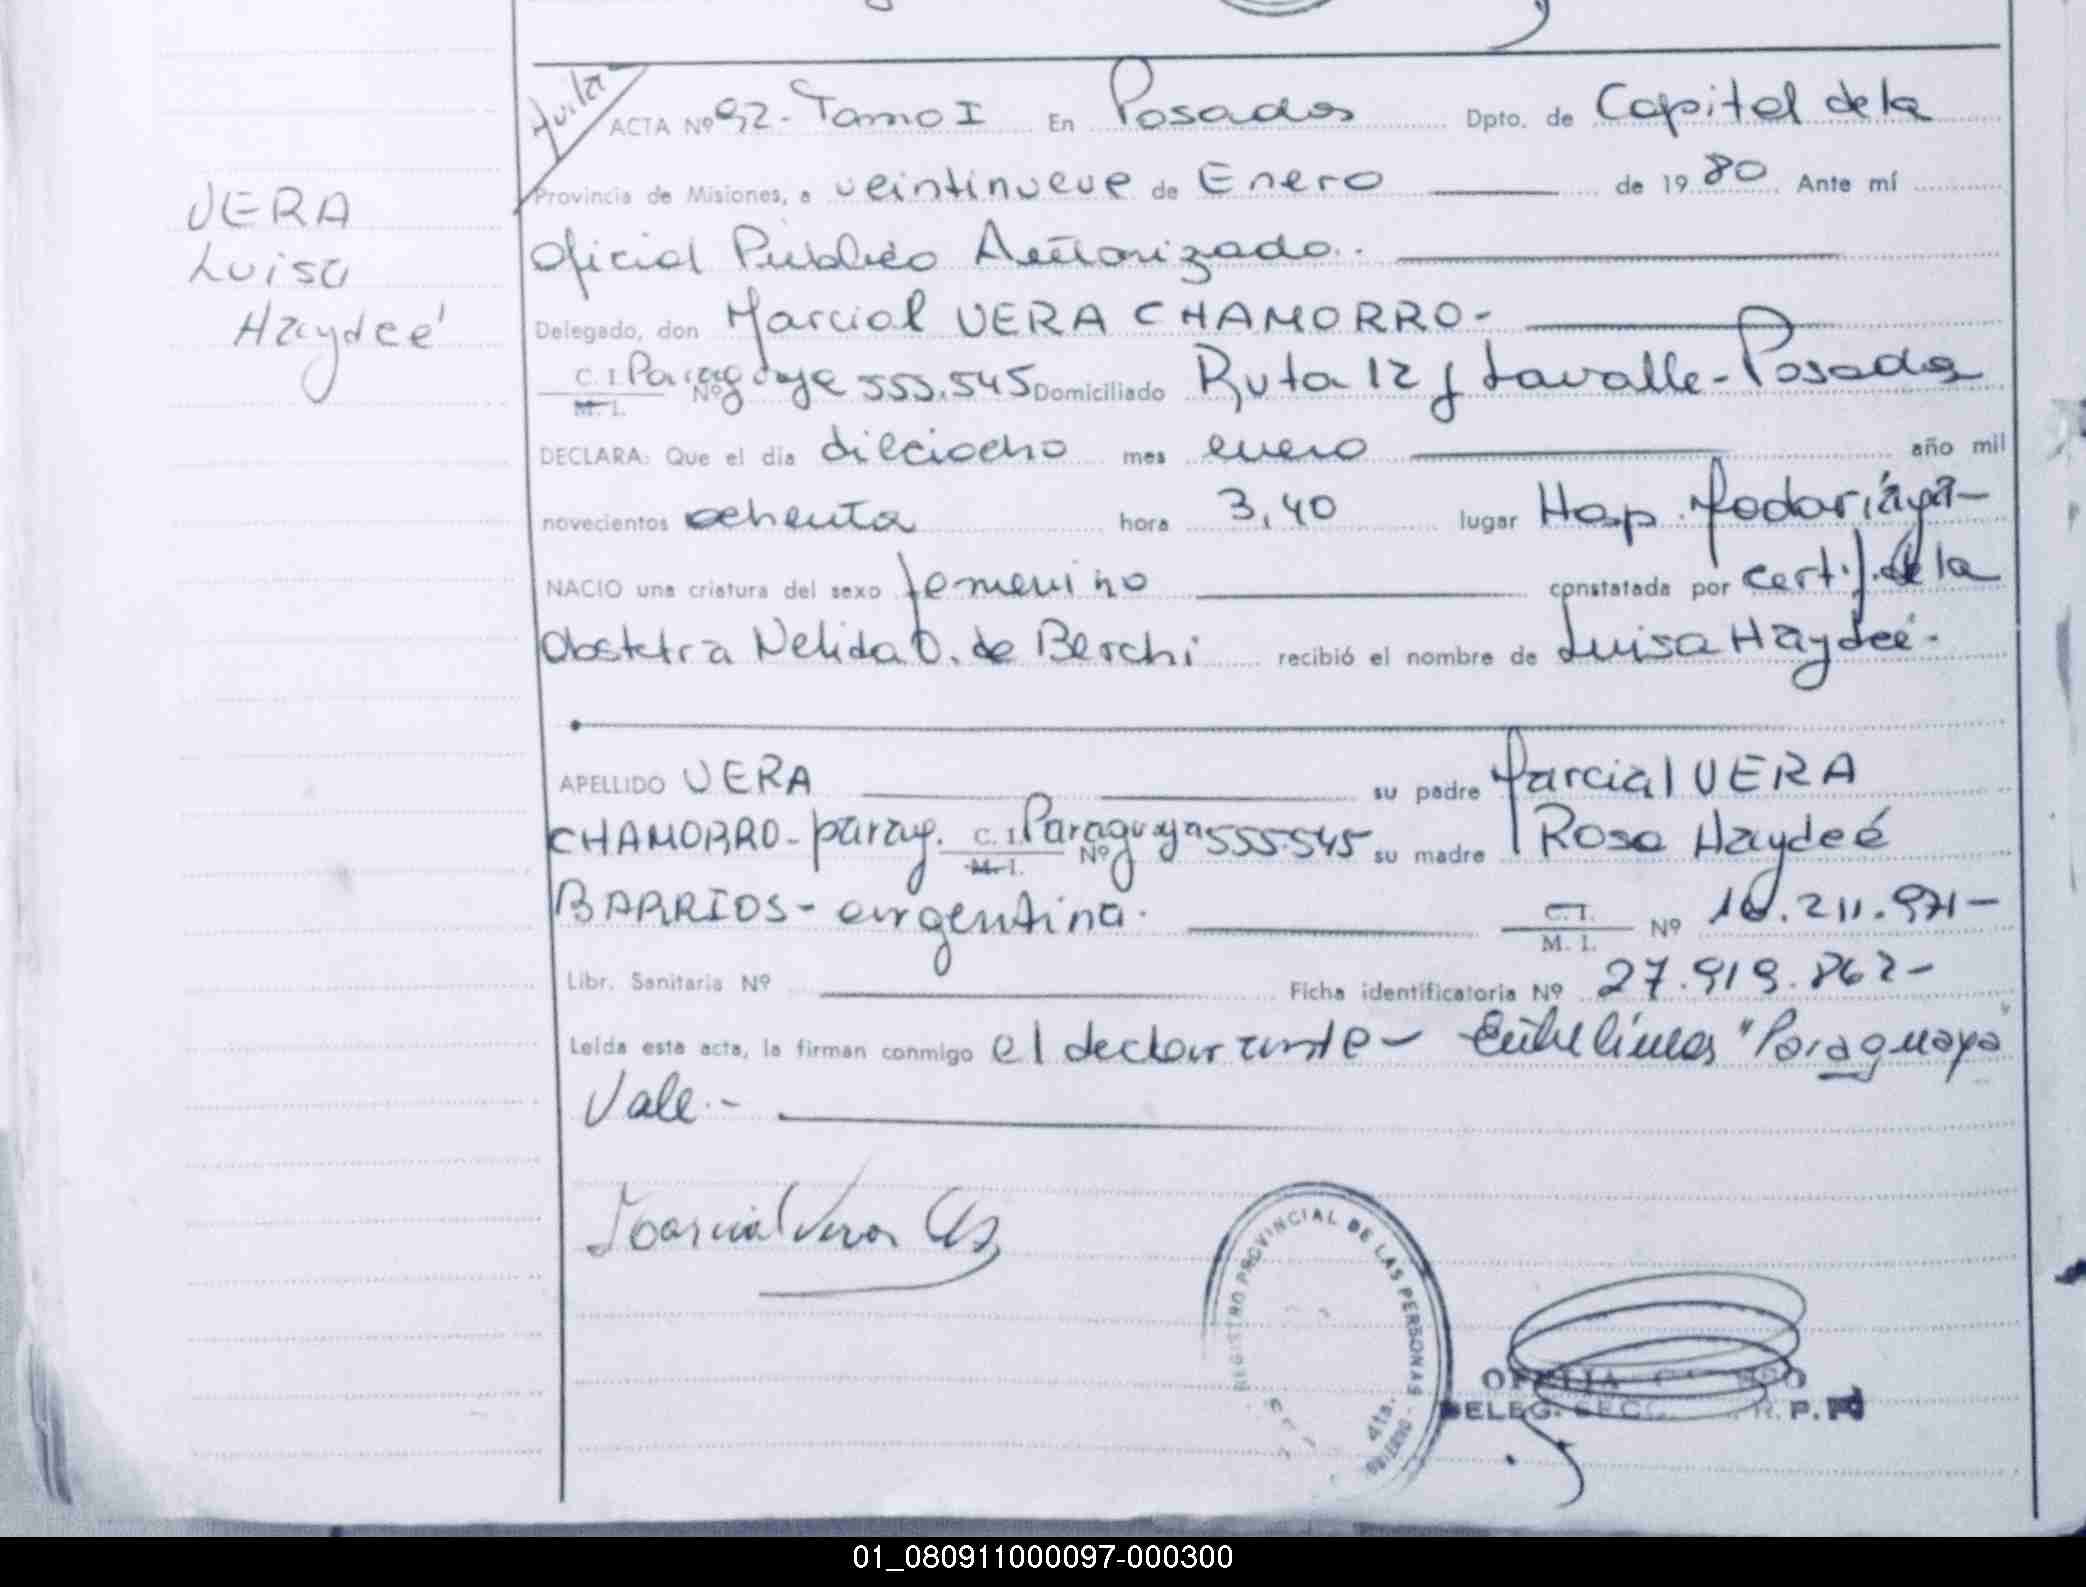 ACTA Nº 92- Tomo I En Posadas Dpto. de Capital de la
Provincia de Misiones, a veintinueve de Enero de 1980 Ante mí
Oficial Público Autorizado.
VERA
Luisa
Haydeé
Delegado, don Marcial VERA CHAMORRO-
C. I. M. I. Nº Paraguaya 555.545 Domiciliado Ruta 12 y Lavalle-Posadas
DECLARA: Que el día dieciocho mes enero año mil
novecientos ochenta hora 3,40 lugar Hosp. Madariaga-
NACIO una criatura del sexo femenino constatada por certif. de la
Obstetra Nelida O. de Berchi recibió el nombre de Luisa Haydeé-
APELLIDO VERA su padre Marcial VERA
CHAMORRO- parag. C. I. M. I. Nº Paraguaya 555.545 su madre Rosa Haydeé
BARRIOS- argentina. C. I. M. I. Nº 10.211.971-
Libr. Sanitaria Nº Ficha identificatoria Nº 27.919.862-
Leída esta acta, la firman conmigo el declarante- Entre líneas "Paraguaya"
Vale.-
Marcial Vera Ch
REGISTRO PROVINCIAL DE LAS PERSONAS
DELEG. SECC. R. P. P.
01_080911000097-000300